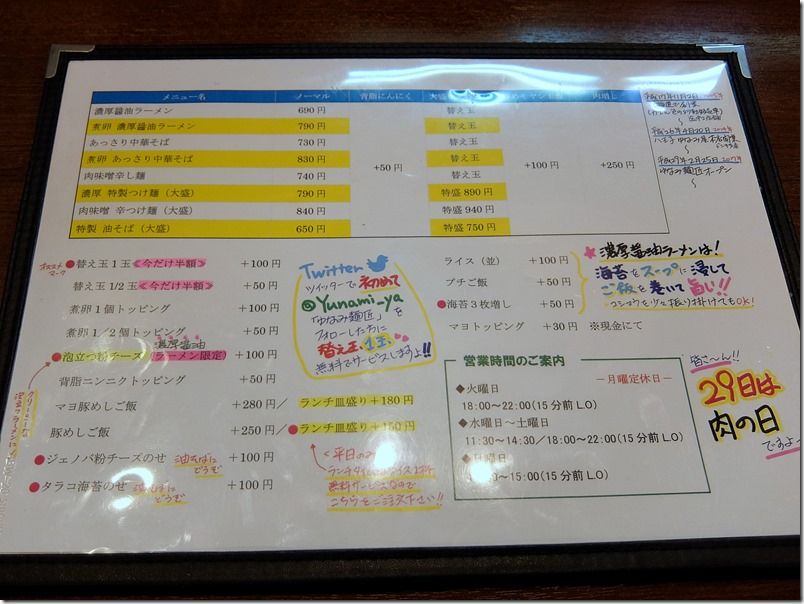 メニュー名 ノーマル 背脂にんにく 肉増し
濃厚醤油ラーメン 690円 替え玉
煮卵 濃厚醤油ラーメン 790円 替え玉
あっさり中華そば 730円 替え玉
煮卵 あっさり中華そば 830円 +50円 替え玉 +100円 +250円
肉味噌辛し麺 740円 替え玉
濃厚 特製つけ麺(大盛) 790円 特盛 890円
肉味噌 辛つけ麺(大盛) 840円 特盛 940円
特製 油そば(大盛) 650円 特盛 750円
平成29年2月25日
ゆなみ麺匠オープン
〜
●替え玉1玉《今だけ半額》 +100円
替え玉 1/2玉《今だけ半額》 +50円
煮卵1個トッピング +100円
煮卵1/2個トッピング +50円
濃厚醤油
●泡立つ粉チーズ(ラーメン限定) +100円
背脂ニンニクトッピング +50円
マヨ豚めしご飯 +280円/ ランチ皿盛り+180円
豚めしご飯 +250円/●ランチ皿盛り+150円
●ジェノバ粉チーズのせ 油そばにどうぞ +100円
●タラコ海苔のせ どうぞ +100円
Twitter
ツイッターで初めて
@Yunami-ya
「ゆなみ麺匠」を
フォローした方に
替え玉、1玉、
無料でサービスしますよ!!
平日のみ
無料サービスなので
こちらをご注文下さい!!
ライス(並) +100円
プチご飯 +50円
●海苔3枚増し +50円
マヨトッピング +30円 ※現金にて
★濃厚醤油ラーメンは!
海苔をスープに浸して
ご飯を巻いて旨い!!
コショウを少々振り掛けてもOK!
営業時間のご案内
―月曜定休日―
◆火曜日
18:00~22:00(15分前L.O)
◆水曜日~土曜日
11:30~14:30/18:00~22:00(15分前L.O)
◆日曜日
~15:00(15分前L.O)
皆さ〜ん!!
29日は
肉の日
ですよ